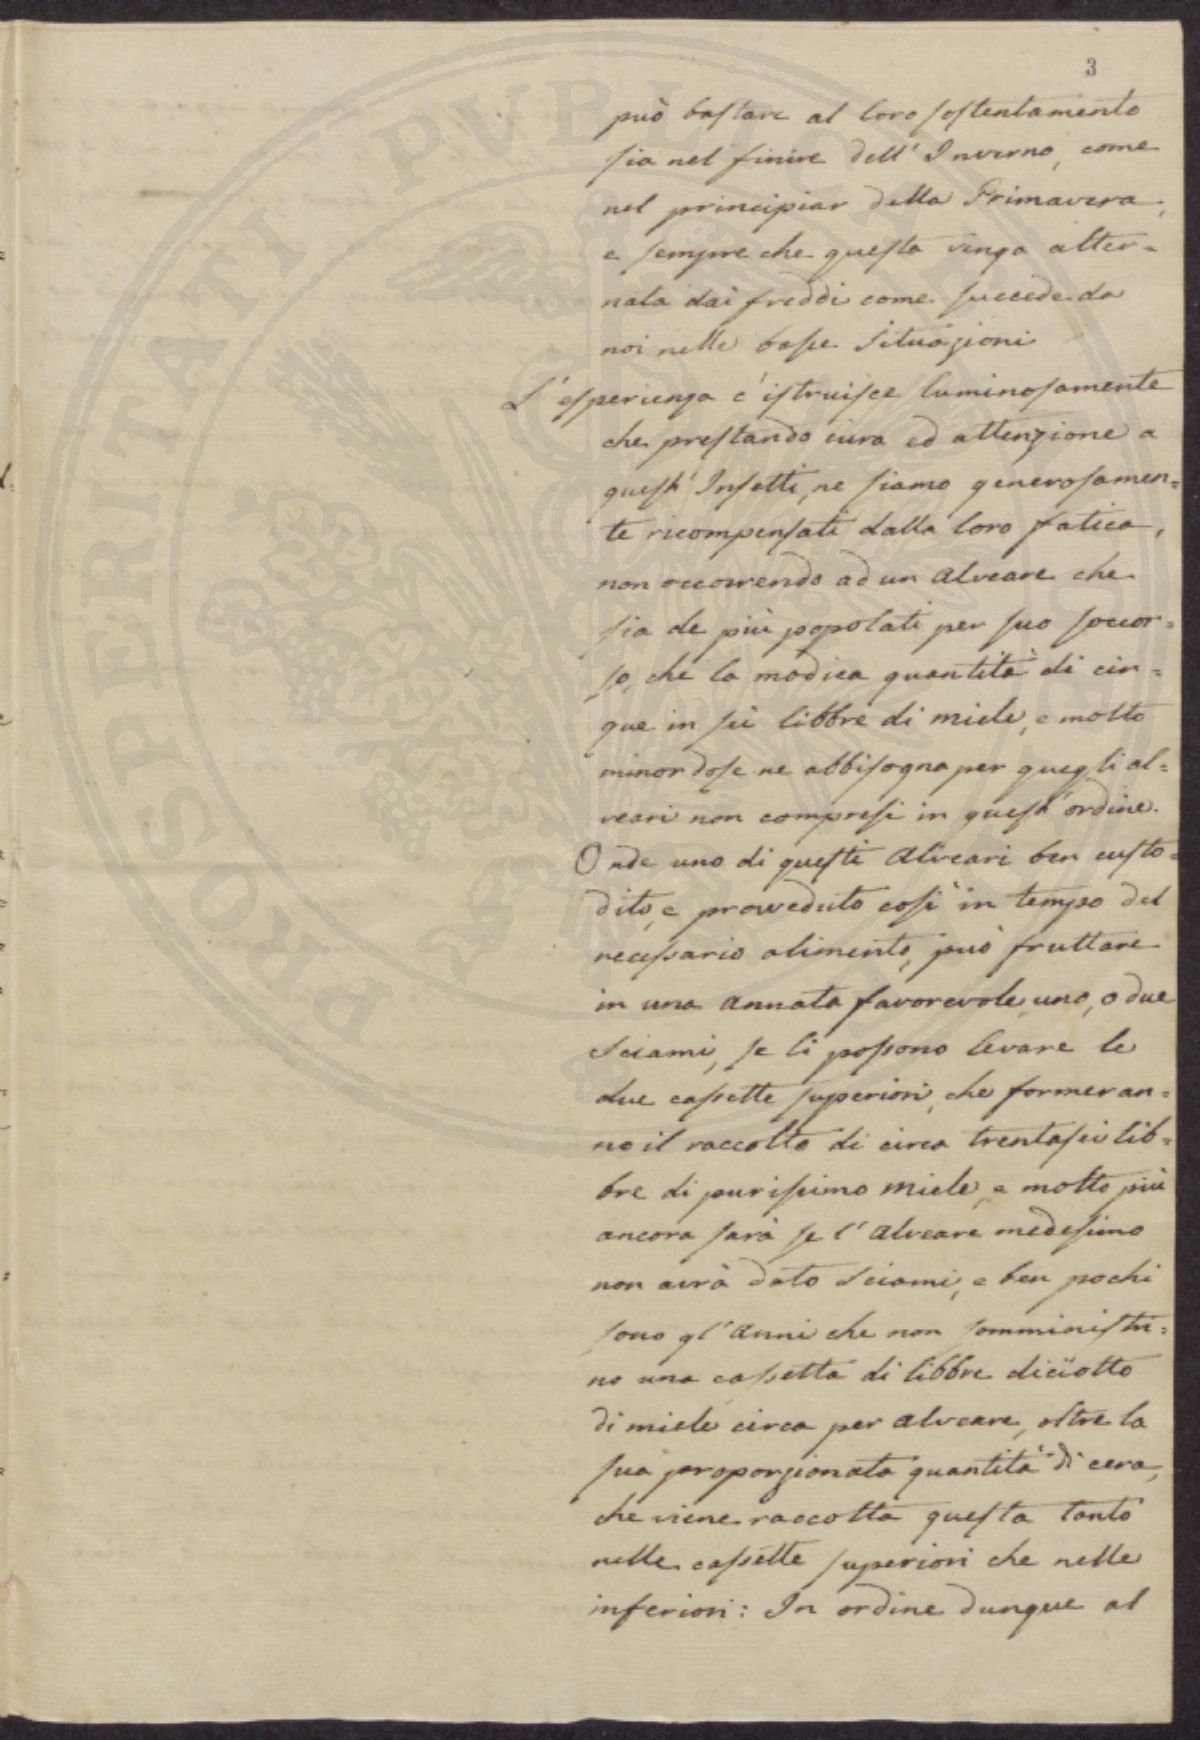 3
PROSPERITATI PVBLICAE
può bastare al loro sostentamento
sia nel finire dell' Inverno, come
nel principiar della Primavera,
e sempre che questa venga alter=
nata dai freddi come succede da
noi nelle basse Situazioni
L'esperienza c'istruisce luminosamente
che prestando cura ed attenzione a
questi Insetti, ne siamo generosamen=
te ricompensati dalla loro fatica,
non occorrendo ad un Alveare che
sia de più popolati per suo soccor=
so, che la modica quantità di cin=
que in sei libbre di miele, e molto
minor dose ne abbisogna per quegli al=
veari non compresi in quest' ordine.
Onde uno di questi Alveari ben custo=
dito, e proveduto così in tempo del
necessario alimento, può fruttare
in una Annata favorevole, uno, o due
Sciami, se li possono levare le
due cassette superiori, che formeran=
no il raccolto di circa trentasei lib=
bre di purissimo miele, e molto più
ancora sarà se l'Alveare medesimo
non avrà dato Sciami, e ben pochi
sono gl'Anni che non somministri=
no una cassetta di libbre diciotto
di miele circa per Alveare, oltre la
sua proporzionata quantità di cera,
che viene raccolta questa tanto
nelle cassette superiori che nelle
inferiori: In ordine dunque al